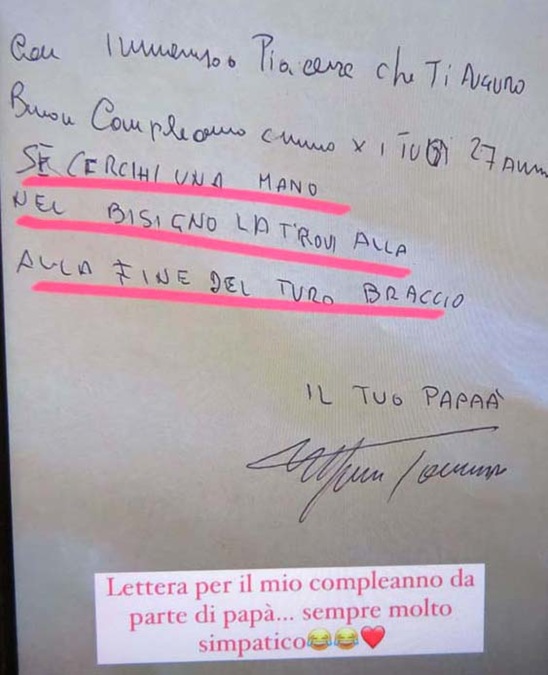 Con Immenso Piacere che Ti Auguro
Buon Compleanno amino x i TUOI 27 Anni
SE CERCHI UNA MANO
NEL BISIGNO LA TROVI ALLA
ALLA FINE DEL TURO BRACCIO
IL TUO PAPAÀ
Lettera per il mio compleanno da
parte di papà... sempre molto
simpatico😂😂❤️